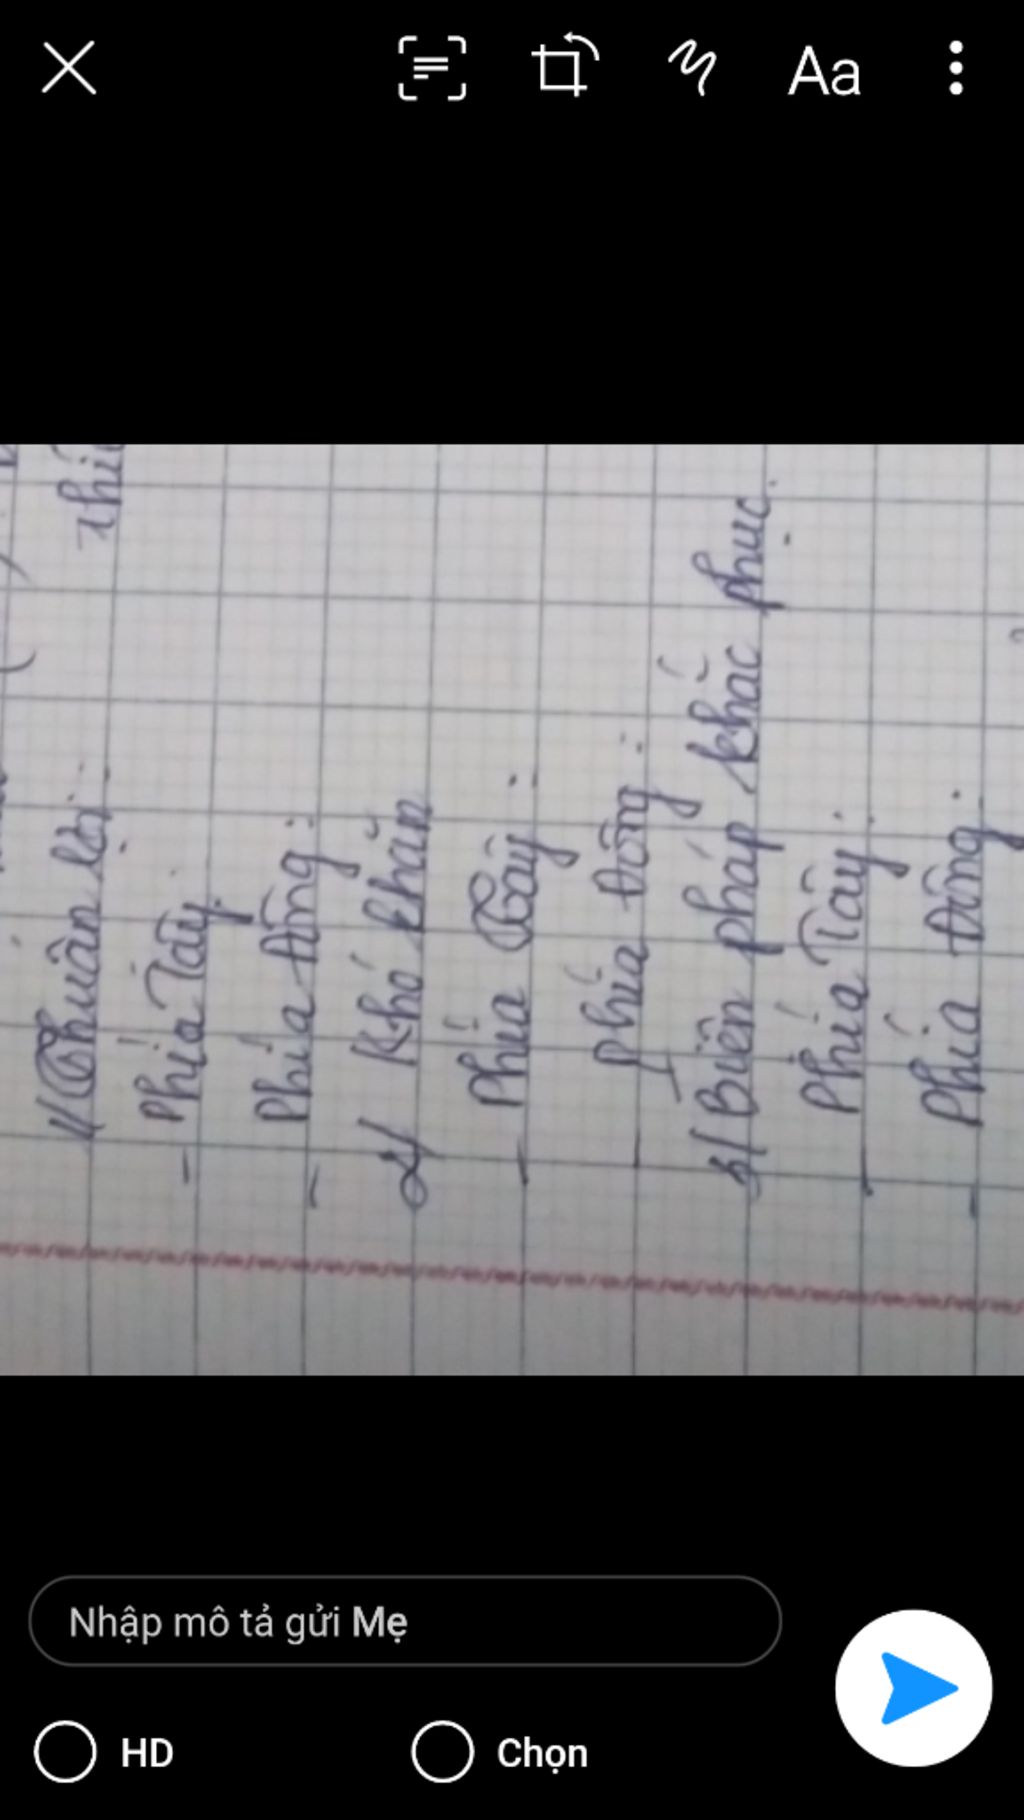 Aa
thiê
1/ Thuận lợi:
- Phía Tây:
- Phía Đông:
2/ Khó khăn
- Phía Tây:
- Phía Đông:
3/ Biện pháp khắc phục.
- Phía Tây:
- Phía Đông:
Nhập mô tả gửi Mẹ
HD
Chọn